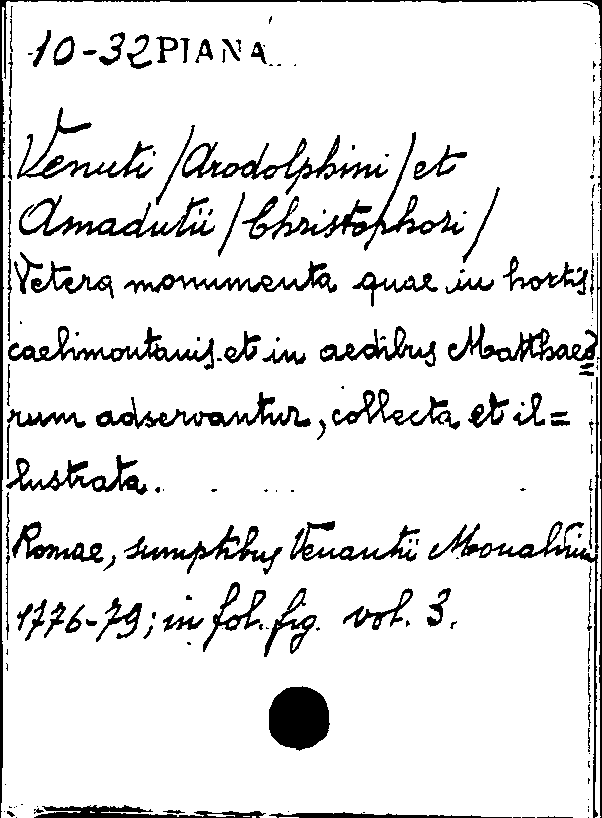 10-32 PIANA
Venuti / Arodolphini / et
Amadutii / Christophori /
Vetera monumenta quae in hortis
caelimontanis et in aedibus Matthaeo=
rum adservantur, collecta et il=
lustrata.
Romae, sumptibus Venantii Monaldini
1776-79; in fol. fig. vol. 3.